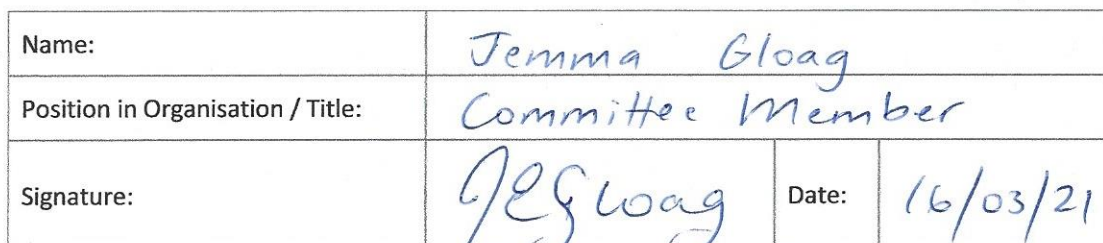 Name: Jemma Gloag
Position in Organisation / Title: Committee Member
Signature: JEGloag Date: 16/03/21